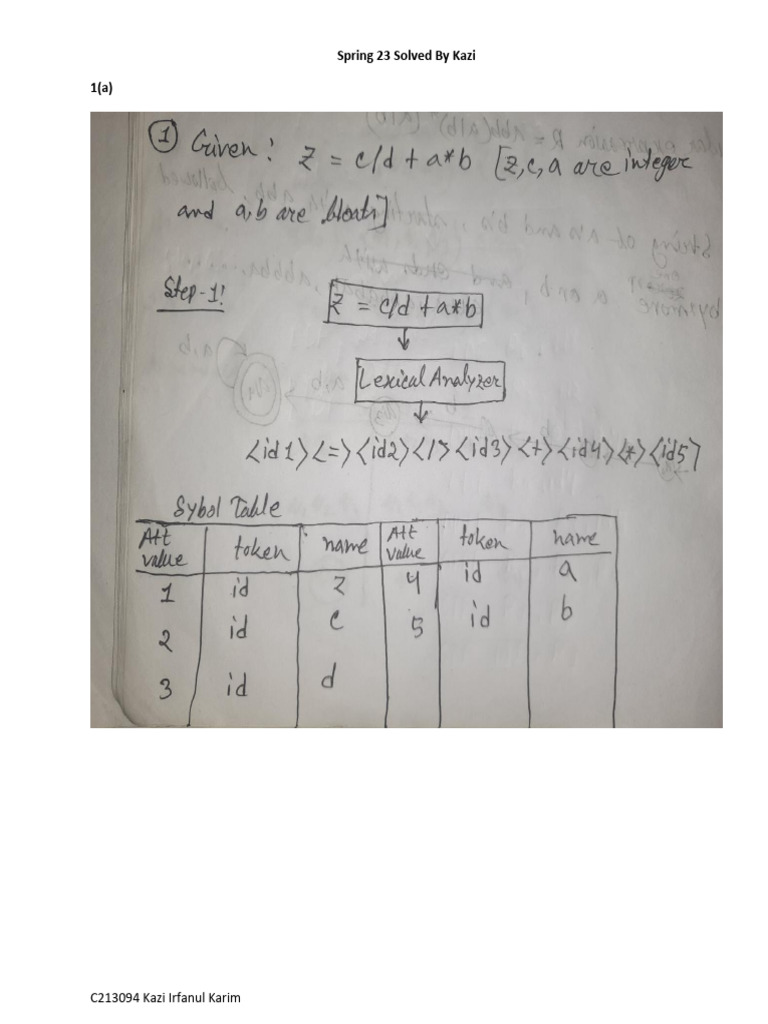 Spring 23 Solved By Kazi
1(a)
1 Given: Z = c/d + a*b [z, c, a are integer
and a, b are floats]
Step-1:
Z = c/d + a*b
Lexical Analyzer
<id1> <=> <id2> </> <id3> <+> <id4> <*> <id5>
Sybol Table
Att value token name Att value token name
1 id z 4 id a
2 id c 5 id b
3 id d
C213094 Kazi Irfanul Karim